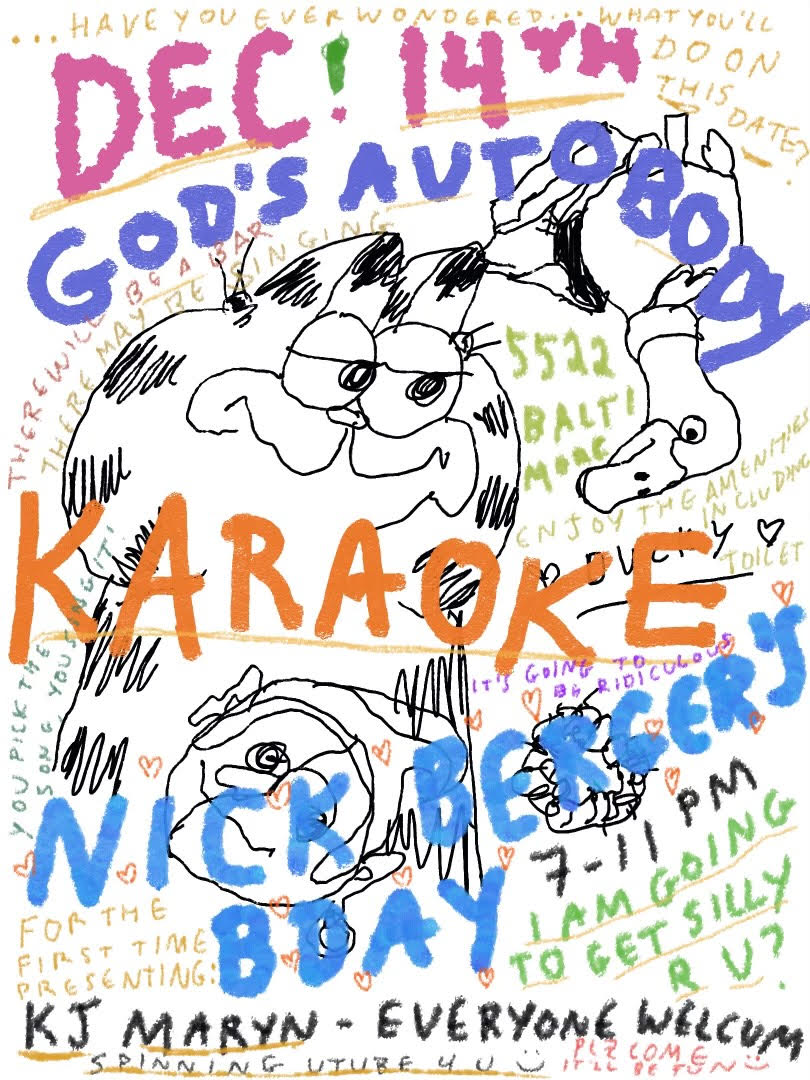 ...HAVE YOU EVER WONDERED... WHAT YOU'LL
DO ON
THIS
DATE?
DEC! 14TH
GOD'S AUTOBODY
THERE WILL BE A BAR
THERE MAY BE SINGING
5522
BALTI
MORE
ENJOY THE AMENITIES
INCLUDING
TOILET
DUCKY ♡
KARAOKE
YOU PICK THE
SONG, YOU SING IT!
IT'S GOING TO
BE RIDICULOUS
NICK BERGER'S
BDAY
7-11 PM
I AM GOING
TO GET SILLY
R U?
FOR THE
FIRST TIME
PRESENTING:
KJ MARYN - EVERYONE WELCUM
SPINNING UTUBE 4 U
PLZ COME
IT'LL BE FUN